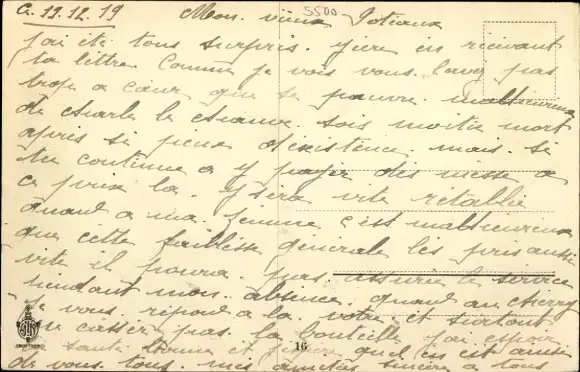 Ce 13.12.19 5500 Mon vieux
j'ai été tous surpris hier en recevant
ta lettre. Comme je vois vous l'avez pas
trop a cœur que se pauvre malheureux
de charle le chauve sois moitie mort
après si peine d'existence mais si
tu continue a y payer des messe a
ce prix la. y sera vite rétablie
quand a ma femme c'est malheureux
que cette faiblesse generale les pris aussi
vite il pourra pas assurer le service
pendant mon absence quand au cherry
je vous répond a la votre et surtout
ne casser pas la bouteille j'ai espoir
santé bonne et quel est ainsi
de vous tous mes amitiés sincère a tous
16